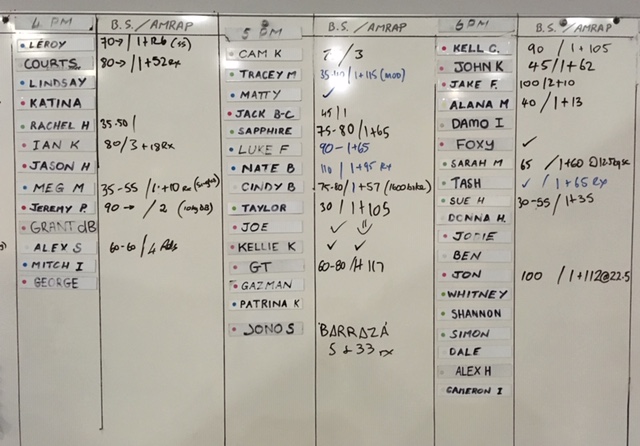 4 PM B.S./AMRAP
LEROY 70→ / 1+R6 (+5)
COURTS. 80→ / 1+52Rx
LINDSAY
KATINA
RACHEL H 35.50/
IAN K 80/3+18Rx
JASON H
MEG M 35-55 /1+10 Rx
JEREMY P. 90→ /2 (10kg DB)
GRANT dB
ALEX S 60-60/4 Rds
MITCH I
GEORGE
5 PM B.S./AMRAP
CAM K ? /3
TRACEY M 35.40/1+115 (MOD)
MATTY ✓
JACK B-C 45/1
SAPPHIRE 75-80/1+65
LUKE F 90-1+65
NATE B 110 /1+95 Rx
CINDY B 75-80/1+57 (1600 bike)
TAYLOR 30 / 1+105
JOE ✓
KELLIE K ✓ ✓
GT 60-80/1+117
GAZMAN
PATRINA K
JONO S BARRAZA
5+33 rx
6 PM B.S./AMRAP
KELL C. 90 /1+105
JOHN K 45/1+62
JAKE F. 100/2+10
ALANA M 40 /1+13
DAMO I
FOXY ✓
SARAH M 65 /1+60 @12.5kg
TASH ✓ /1+65 Rx
SUE H 30-55/1+35
DONNA H.
JODIE
BEN
JON 100 /1+112@22.5
WHITNEY
SHANNON
SIMON
DALE
ALEX H
CAMERON I